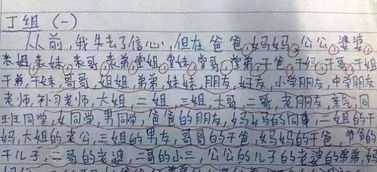 丁组 (一)
从前,我失去了信心,但在爸爸、妈妈、公公、婆婆、
表姐、表妹、表哥、表弟、堂姐、堂妹、堂哥、堂弟、干爸、干妈、干哥、干姐
干弟,干妹,哥哥,姐姐,弟弟,妹妹,朋友,好友,小学朋友,中学朋友
老师,补习老师,大姐,二姐,三姐,大哥,二哥,老朋友,亲戚,同
班同学,女同学,男同学,爸爸的朋友,妈妈的同事,三姐的干
妈,大姐的老公,三姐的男友,哥哥的干爸,妈妈的干爸,爸爸的
干儿子,二哥的老婆,二哥的小三,公公的儿子的老婆的弟弟,妈